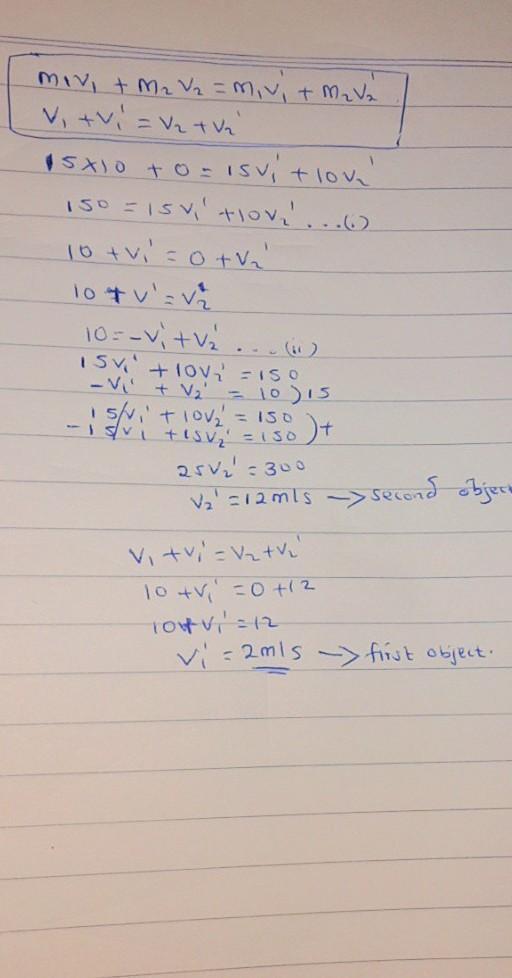 m₁v₁ + m₂v₂ = m₁v₁' + m₂v₂'
v₁ + v₁' = v₂ + v₂'
15×10 + 0 = 15v₁' + 10v₂'
150 = 15v₁' + 10v₂' ...(i)
10 + v₁' = 0 + v₂'
10 + v' = v₂'
10 = -v₁' + v₂' ... (ii)
15v₁' + 10v₂' = 150
-v₁' + v₂' = 10 ) 15
15v₁' + 10v₂' = 150
-15v₁' + 15v₂' = 150 ) +
25v₂' = 300
v₂' = 12m/s → second object
v₁ + v₁' = v₂ + v₂'
10 + v₁' = 0 + 12
10 + v₁' = 12
v₁' = 2m/s → first object.